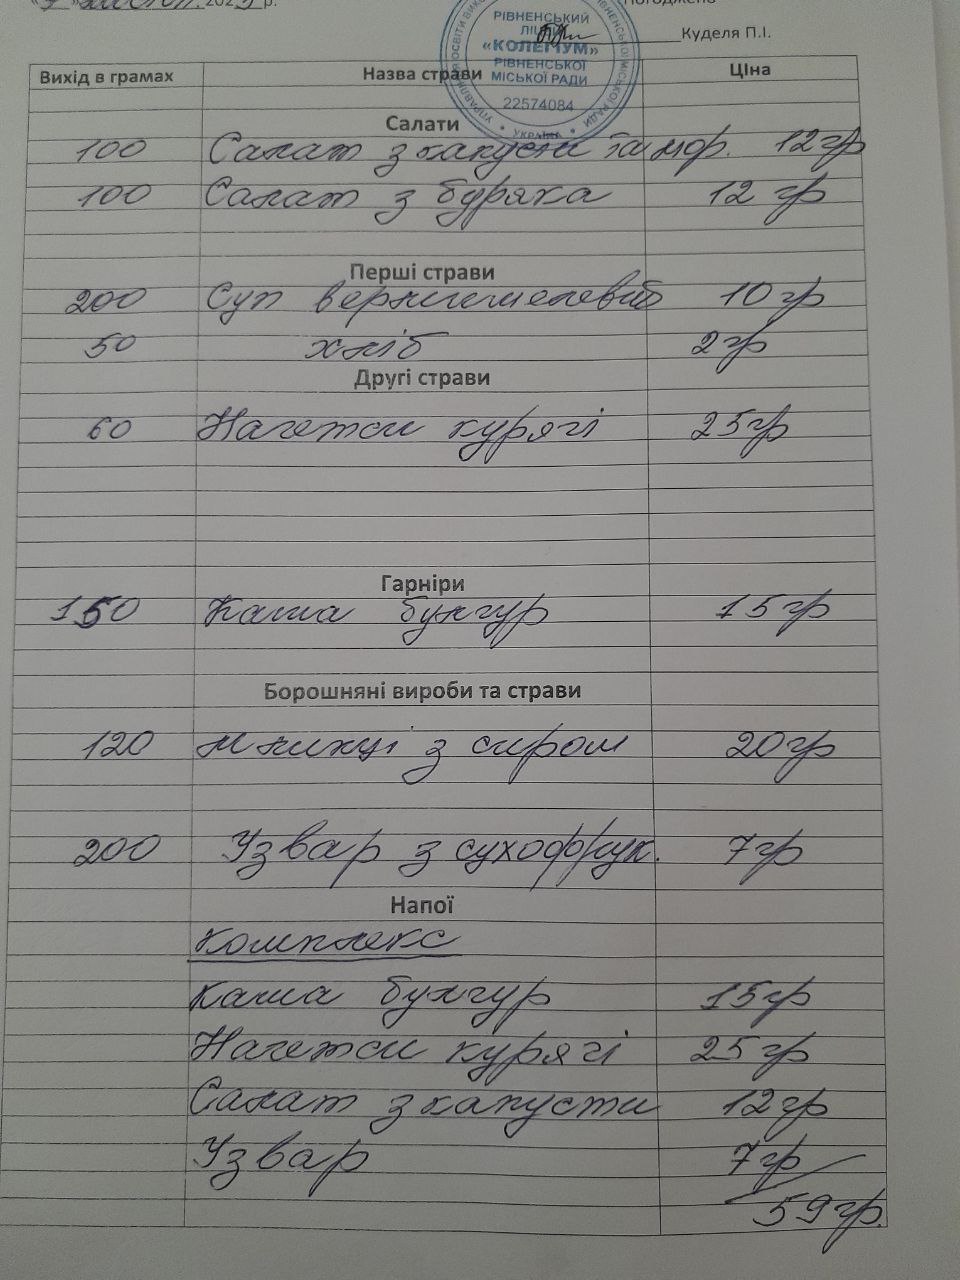 листоп. 202 р.
Погоджено
Куделя П.І.
УПРАВЛІННЯ ОСВІТИ
РІВНЕНСЬКИЙ
ЛІЦЕЙ
«КОЛЕГІУМ»
РІВНЕНСЬКОЇ
МІСЬКОЇ РАДИ
22574084
УКРАЇНА
Вихід в грамах Назва страви Ціна
Салати
100 Салат з капусти та мор. 12гр
100 Салат з буряка 12 гр
Перші страви
200 Суп вермишелевий 10гр
50 хліб 2гр
Другі страви
60 Нагетси курячі 25гр
Гарніри
150 Каша булгур 15гр
Борошняні вироби та страви
120 млинці з сиром 20гр
200 Узвар з сухофрук. 7гр
Напої
Комплекс
Каша булгур 15гр
Нагетси курячі 25гр
Салат з капусти 12гр
Узвар 7гр
59гр.